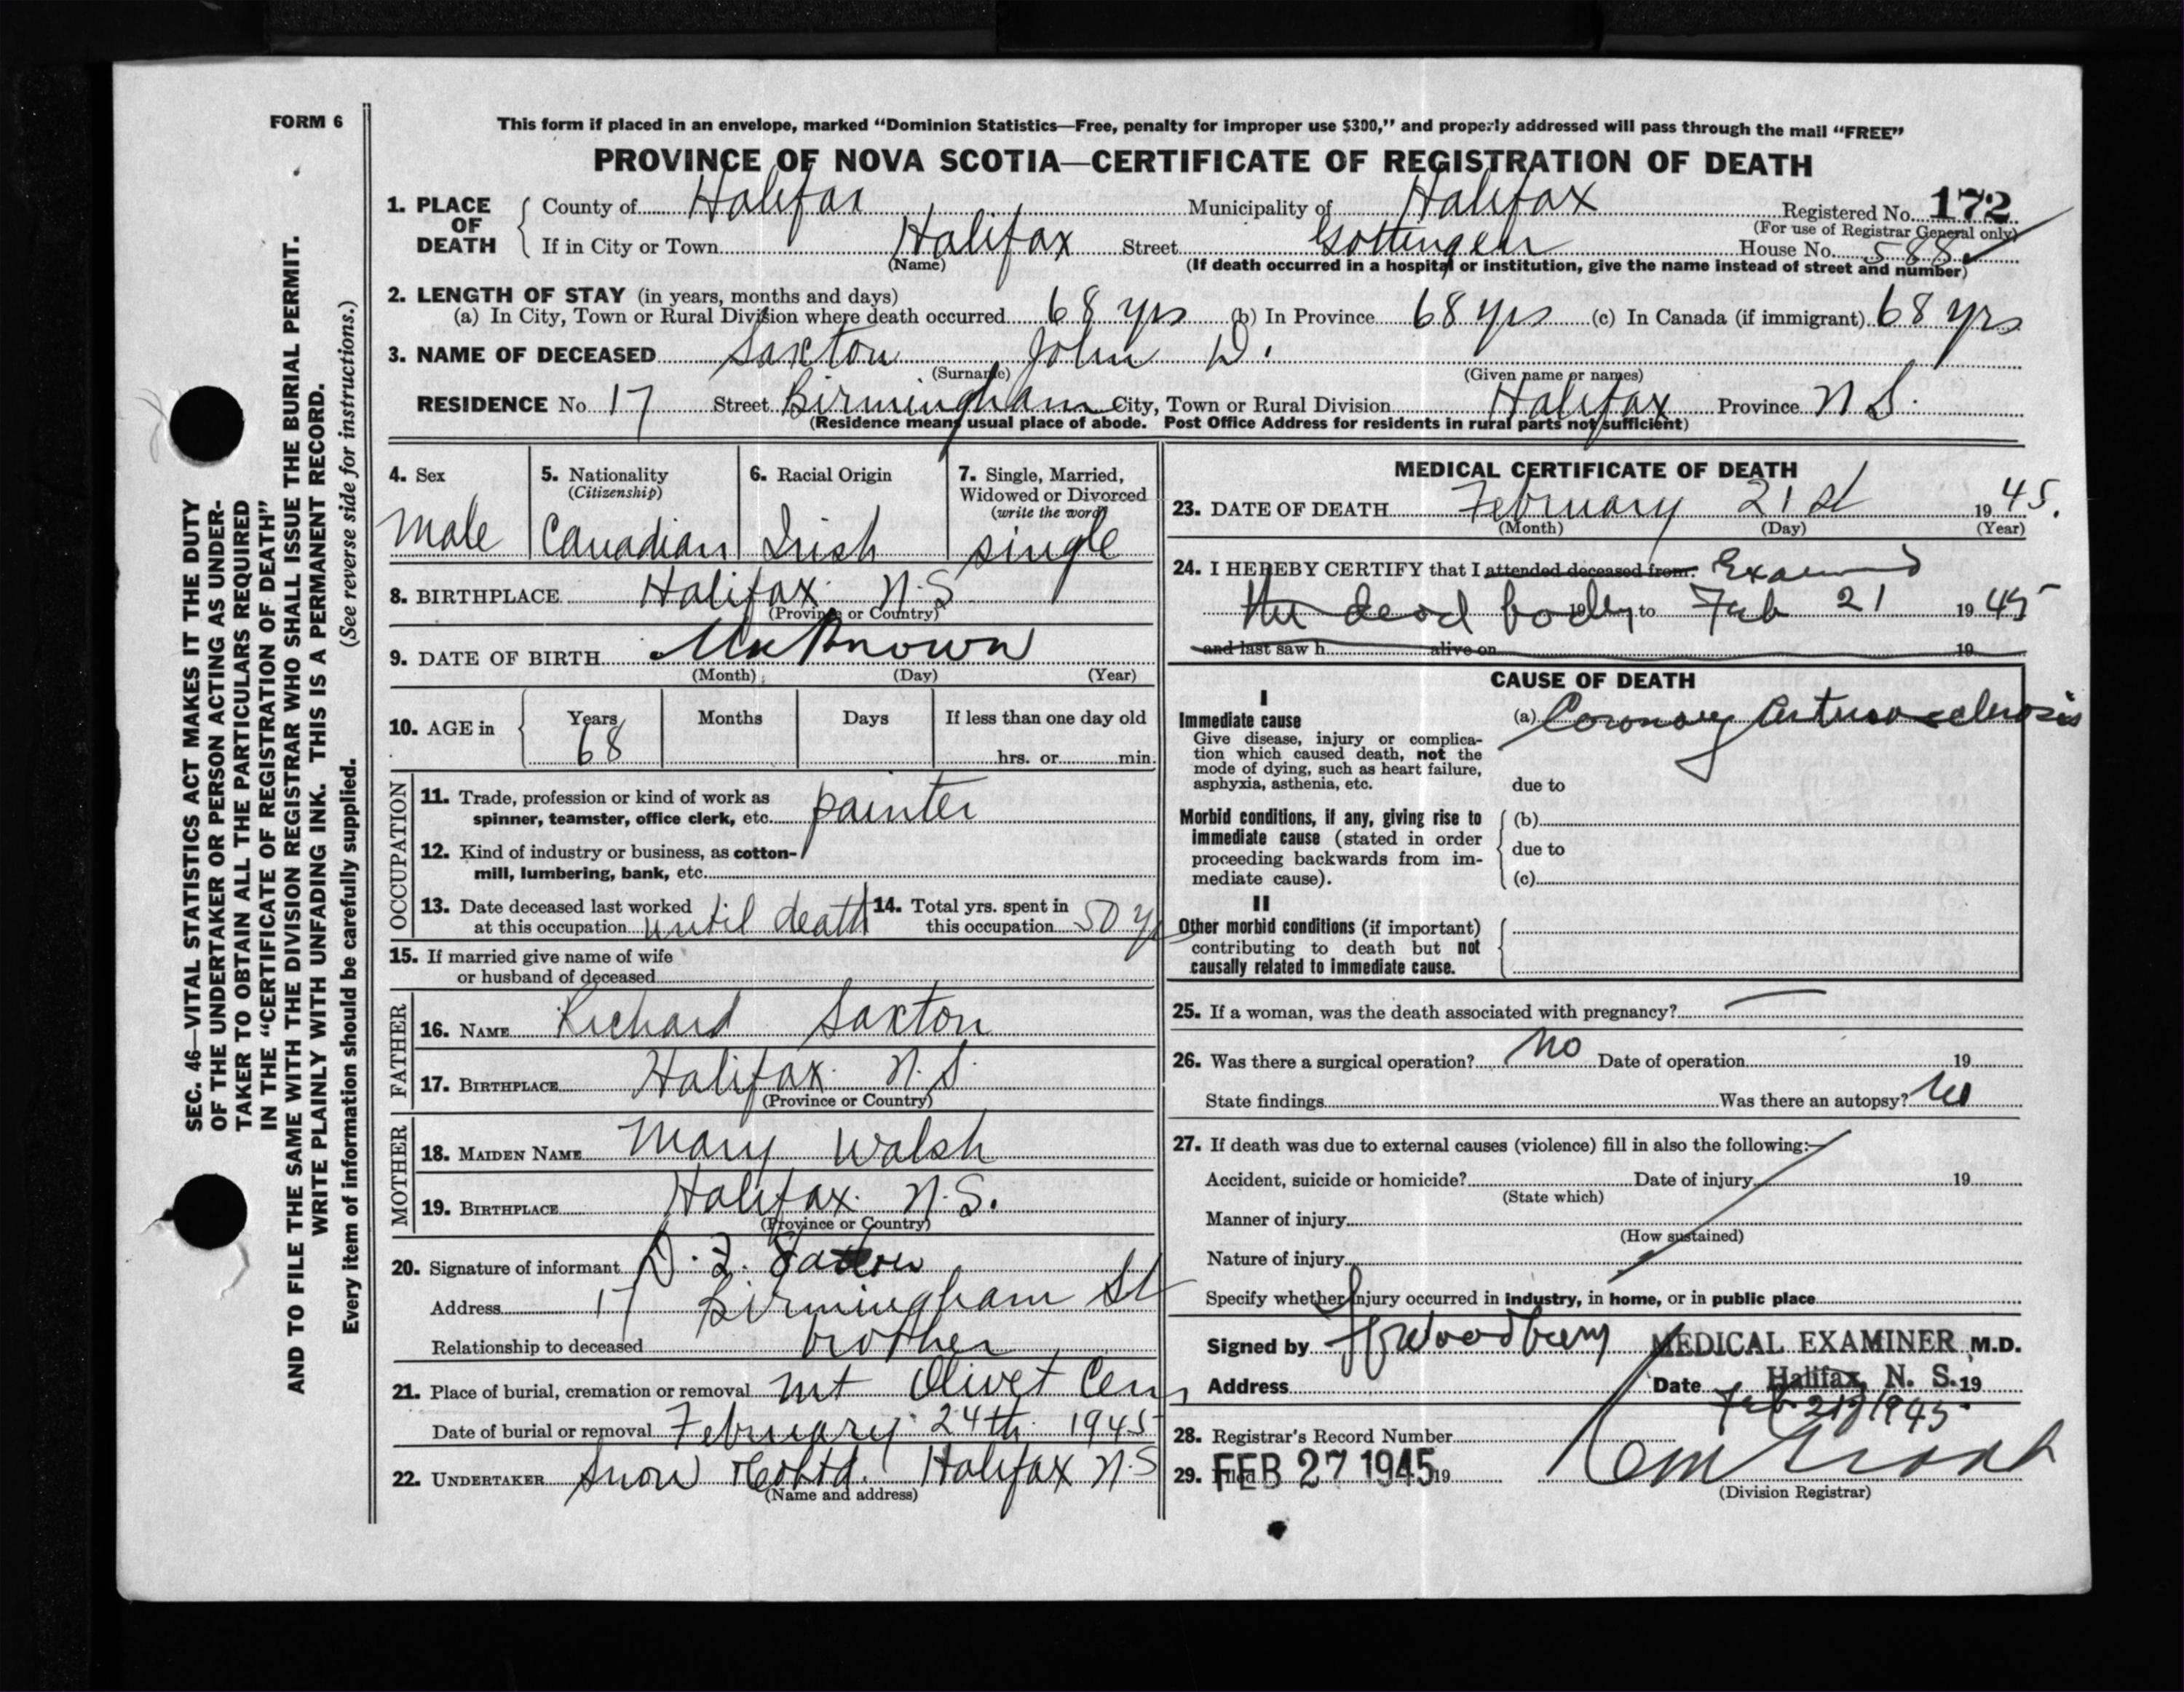 FORM 6
This form if placed in an envelope, marked "Dominion Statistics—Free, penalty for improper use $300," and properly addressed will pass through the mail "FREE"
PROVINCE OF NOVA SCOTIA—CERTIFICATE OF REGISTRATION OF DEATH
1. PLACE OF DEATH County of Halifax Municipality of Halifax Registered No. 172
(For use of Registrar General only)
If in City or Town Halifax Street Gottingen House No. 588
(Name) (If death occurred in a hospital or institution, give the name instead of street and number)
2. LENGTH OF STAY (in years, months and days)
(a) In City, Town or Rural Division where death occurred 68 yrs (b) In Province 68 yrs (c) In Canada (if immigrant) 68 yrs
3. NAME OF DECEASED Saxton John D.
(Surname) (Given name or names)
RESIDENCE No. 17 Street Birmingham City, Town or Rural Division Halifax Province N S.
(Residence means usual place of abode. Post Office Address for residents in rural parts not sufficient)
4. Sex 5. Nationality 6. Racial Origin 7. Single, Married,
(Citizenship) Widowed or Divorced
(write the word)
Male Canadian Irish single
8. BIRTHPLACE Halifax N.S
(Province or Country)
9. DATE OF BIRTH Unknown
(Month) (Day) (Year)
10. AGE in Years Months Days If less than one day old
68 hrs. or min.
OCCUPATION
11. Trade, profession or kind of work as
spinner, teamster, office clerk, etc. painter
12. Kind of industry or business, as cotton-
mill, lumbering, bank, etc.
13. Date deceased last worked 14. Total yrs. spent in
at this occupation until death this occupation 50 yrs
15. If married give name of wife
or husband of deceased
FATHER
16. NAME Richard Saxton
17. BIRTHPLACE Halifax N.S.
(Province or Country)
MOTHER
18. MAIDEN NAME Mary Walsh
19. BIRTHPLACE Halifax N.S.
(Province or Country)
20. Signature of informant Saxton
Address 17 Birmingham St
Relationship to deceased brother
21. Place of burial, cremation or removal Mt Olivet Cem
Date of burial or removal February 24th 1945
22. UNDERTAKER Snow & Co Ltd. Halifax N.S
(Name and address)
MEDICAL CERTIFICATE OF DEATH
23. DATE OF DEATH February 21st 1945.
(Month) (Day) (Year)
24. I HEREBY CERTIFY that I attended deceased from: Examined
the dead body 19 to Feb 21 1945
and last saw h alive on 19
CAUSE OF DEATH
I
Immediate cause (a) Coronary Arteriosclerosis
Give disease, injury or complica-
tion which caused death, not the
mode of dying, such as heart failure,
asphyxia, asthenia, etc. due to
Morbid conditions, if any, giving rise to (b)
immediate cause (stated in order
proceeding backwards from im- due to
mediate cause). (c)
II
Other morbid conditions (if important)
contributing to death but not
causally related to immediate cause.
25. If a woman, was the death associated with pregnancy? —
26. Was there a surgical operation? No Date of operation 19
State findings Was there an autopsy? No
27. If death was due to external causes (violence) fill in also the following:—
Accident, suicide or homicide? Date of injury 19
(State which)
Manner of injury
(How sustained)
Nature of injury
Specify whether injury occurred in industry, in home, or in public place
Signed by Woodbury MEDICAL EXAMINER M.D.
Address Date Halifax, N. S. 19
Feb 21 1945
28. Registrar's Record Number
29. Filed FEB 27 1945 19
(Division Registrar)
SEC. 46—VITAL STATISTICS ACT MAKES IT THE DUTY
OF THE UNDERTAKER OR PERSON ACTING AS UNDER-
TAKER TO OBTAIN ALL THE PARTICULARS REQUIRED
IN THE "CERTIFICATE OF REGISTRATION OF DEATH"
AND TO FILE THE SAME WITH THE DIVISION REGISTRAR WHO SHALL ISSUE THE BURIAL PERMIT.
WRITE PLAINLY WITH UNFADING INK. THIS IS A PERMANENT RECORD.
Every item of information should be carefully supplied. (See reverse side for instructions.)